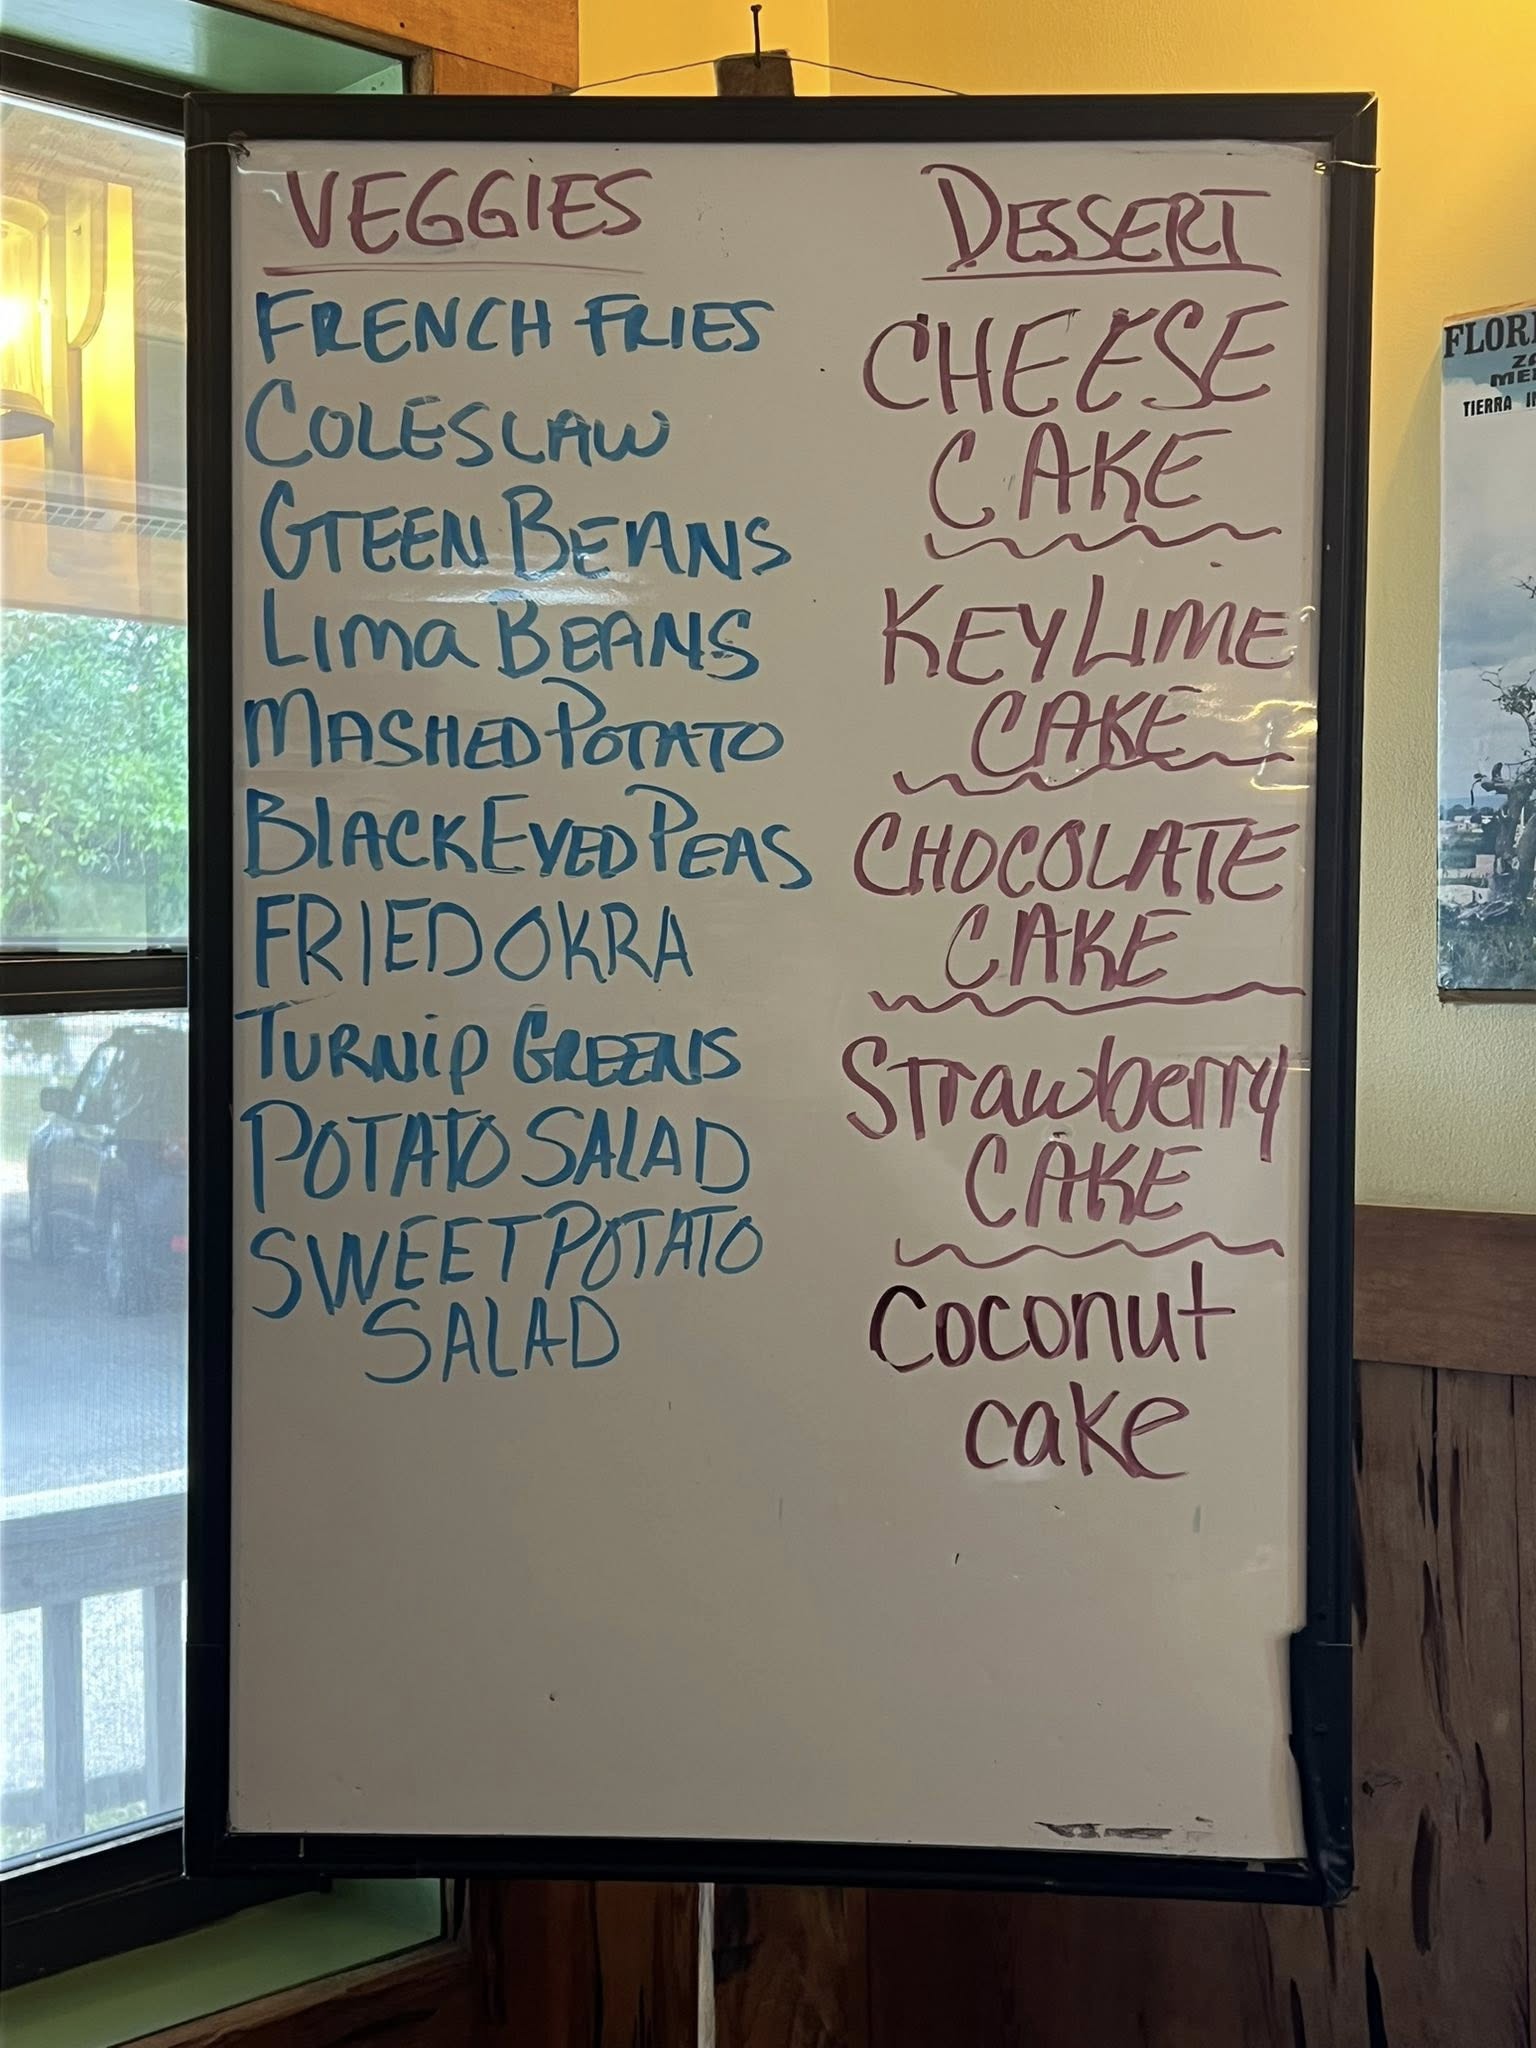 VEGGIES
FRENCH FRIES
COLESLAW
GREEN BEANS
LIMA BEANS
MASHED POTATO
BLACK EYED PEAS
FRIED OKRA
TURNIP GREENS
POTATO SALAD
SWEET POTATO
SALAD
DESSERT
CHEESE
CAKE
KEY LIME
CAKE
CHOCOLATE
CAKE
Strawberry
CAKE
Coconut
cake
TIERRA